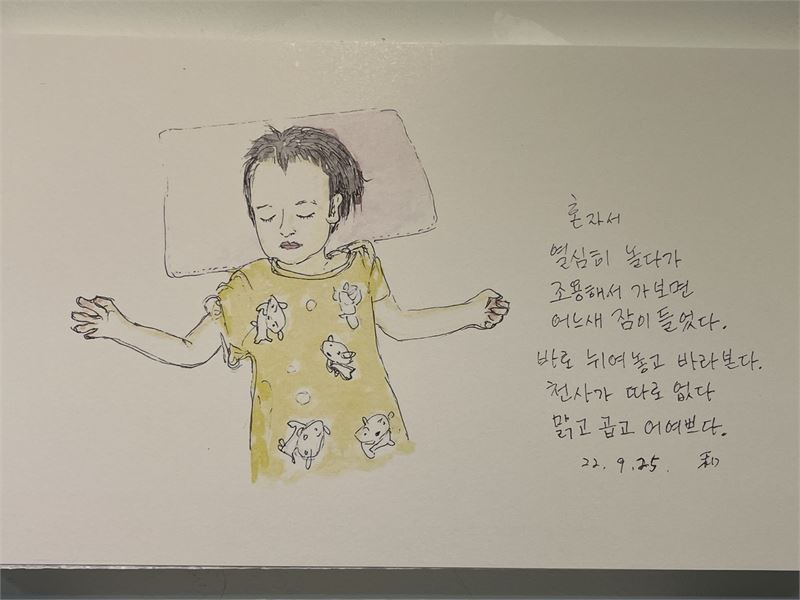 혼자서
열심히 놀다가
조용해서 가보면
어느새 잠이 들었다.
바로 뉘여놓고 바라본다.
천사가 따로 없다
맑고 곱고 어여쁘다.
22. 9. 25.